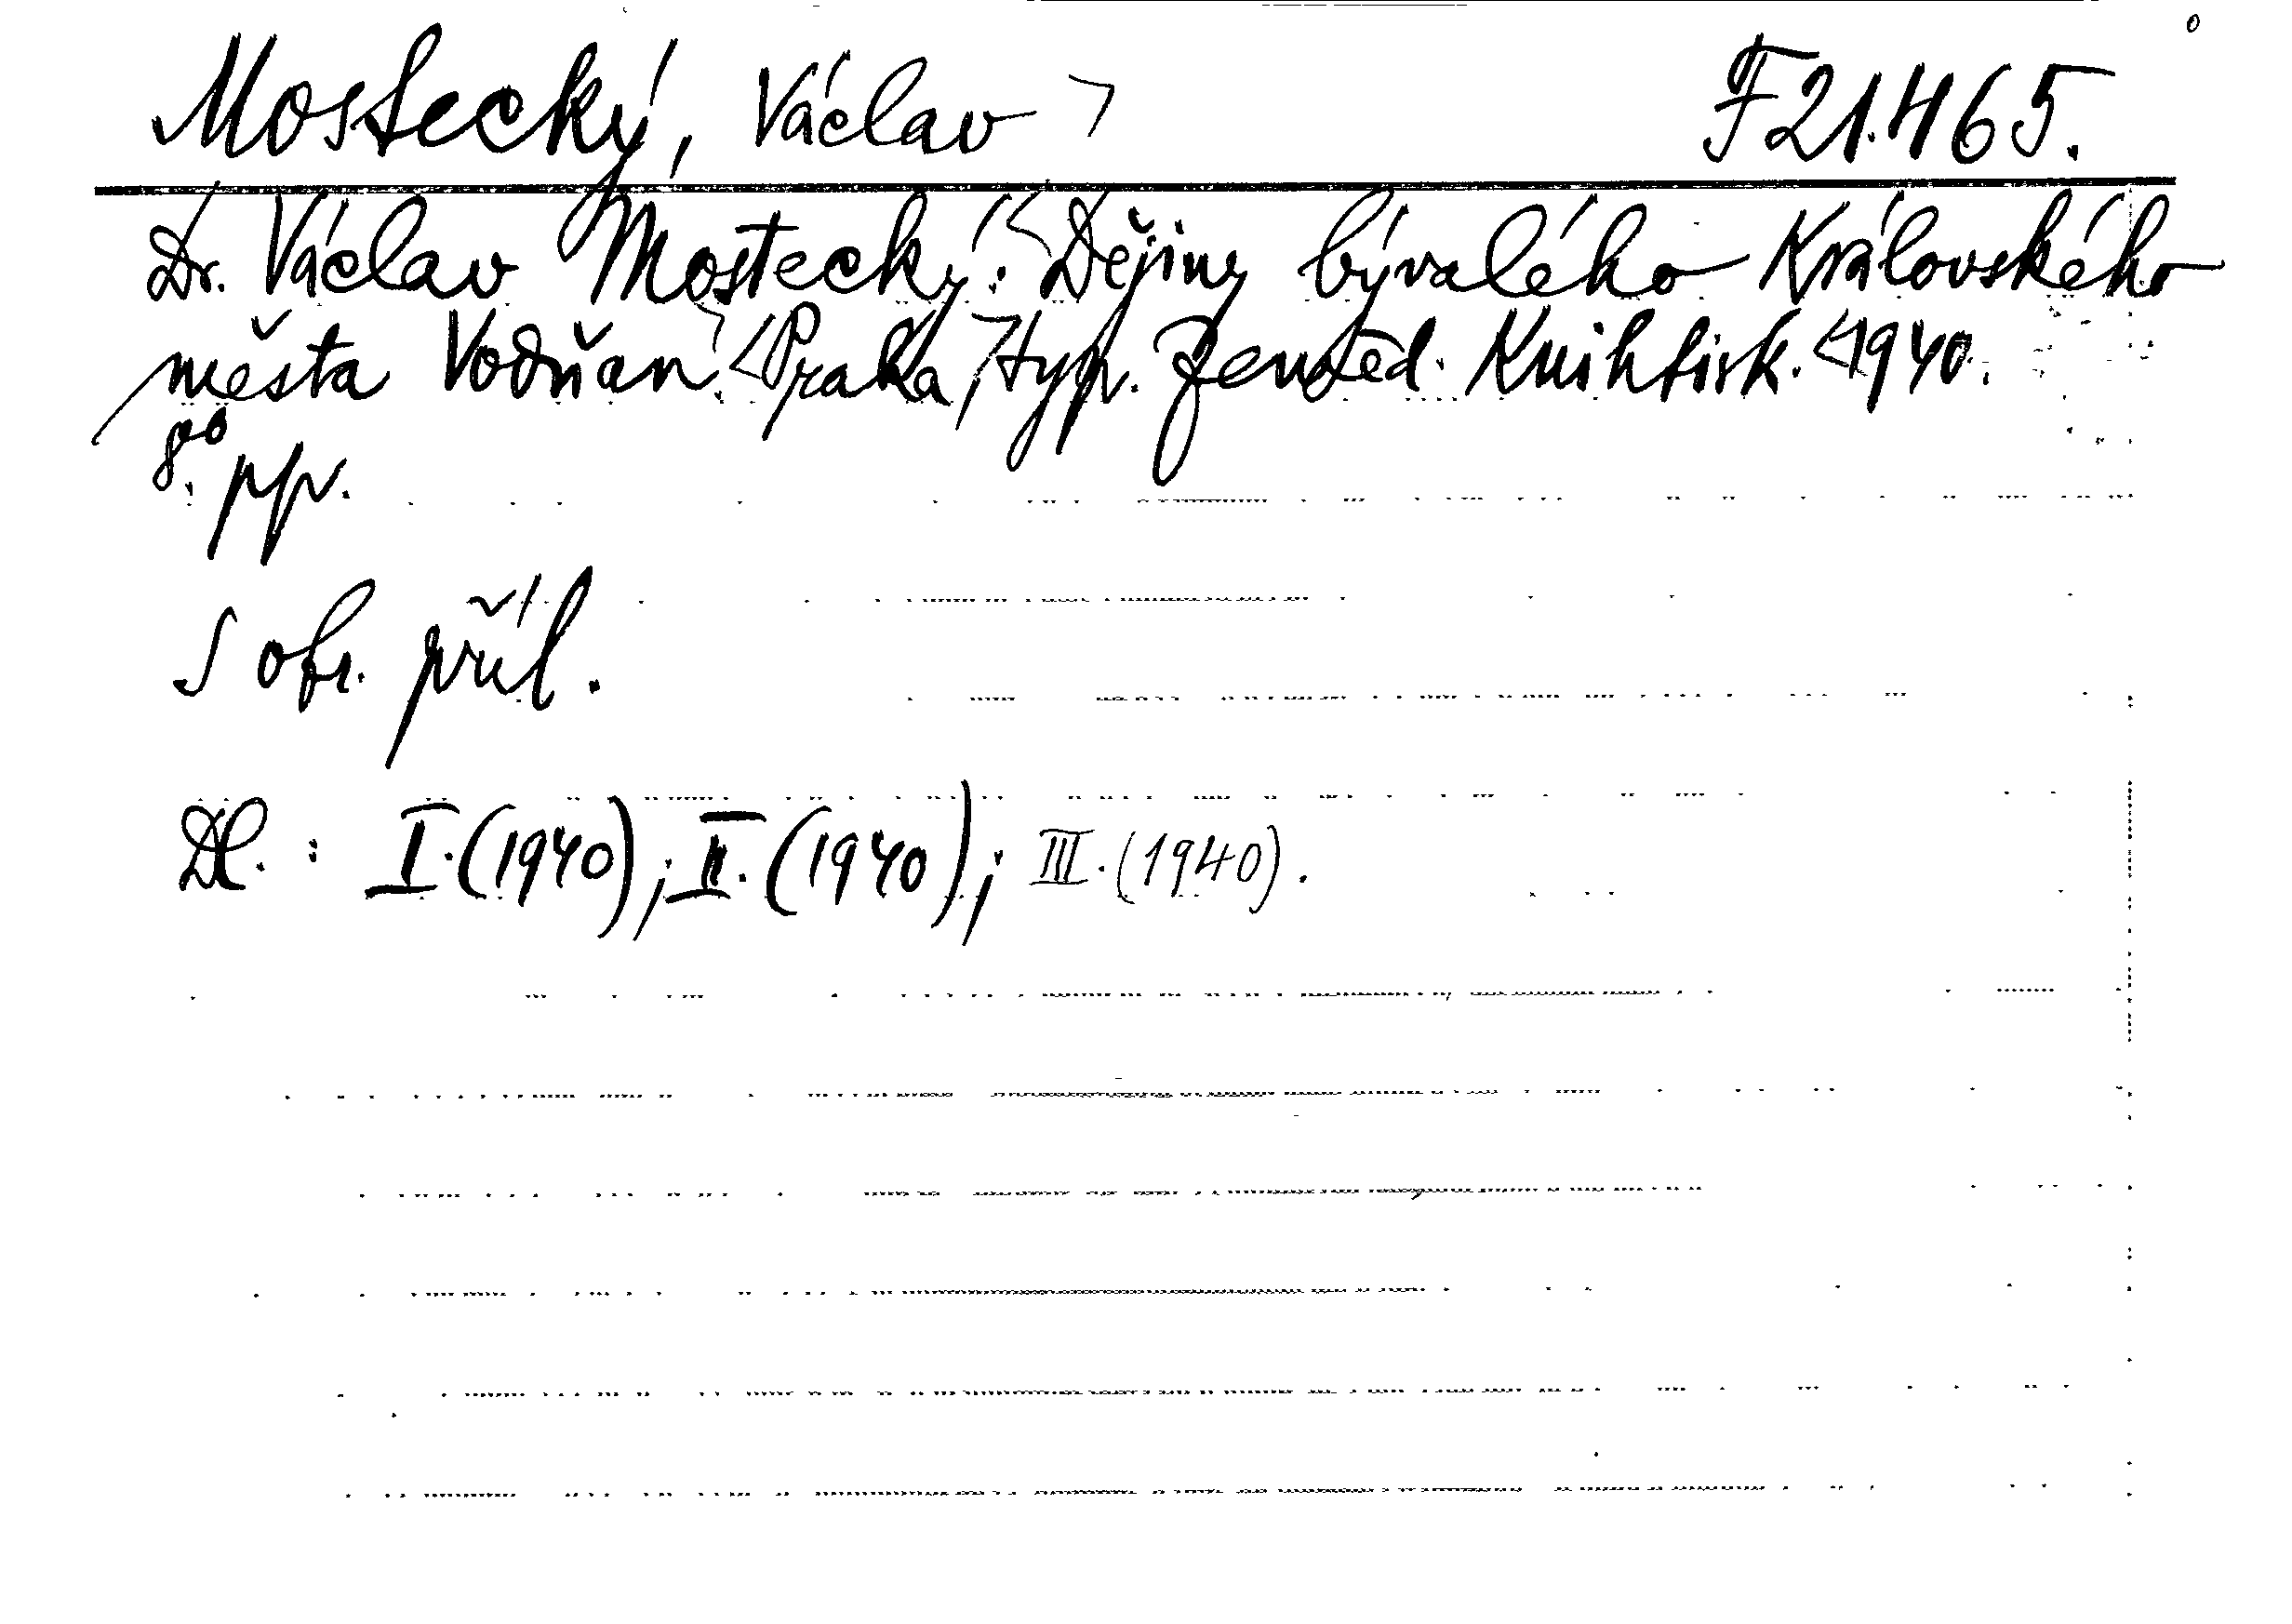 Mostecký, Václav F21.465.
Dr. Václav Mostecký: Dějiny bývalého Královského
města Vodňan. Praha, typ. Zeměděl. Knihtisk. 1940.
8°. pp.
S obr. příl.
Dl. : I. (1940); II. (1940); III. (1940).